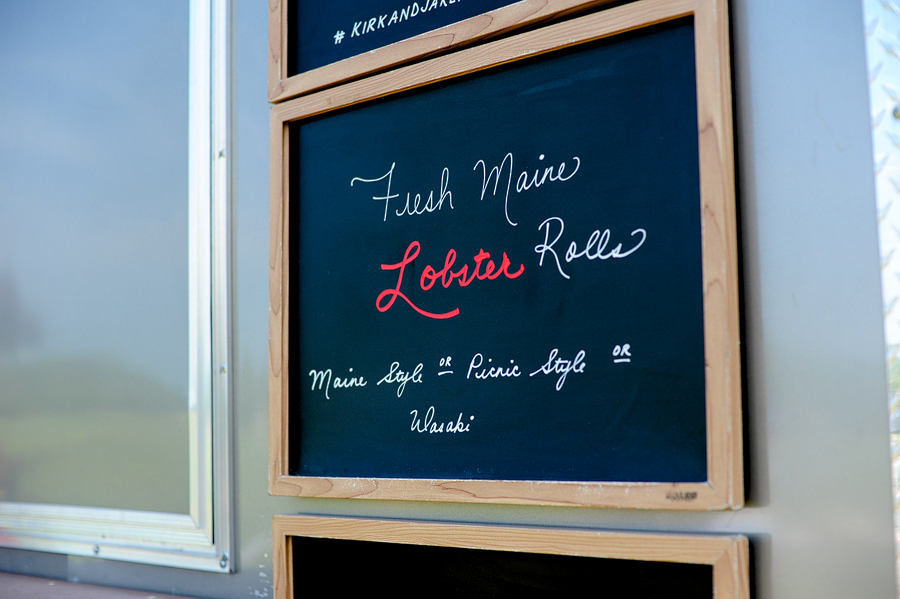 Fresh Maine
Lobster Rolls
Maine Style OR Picnic Style OR
Wasabi